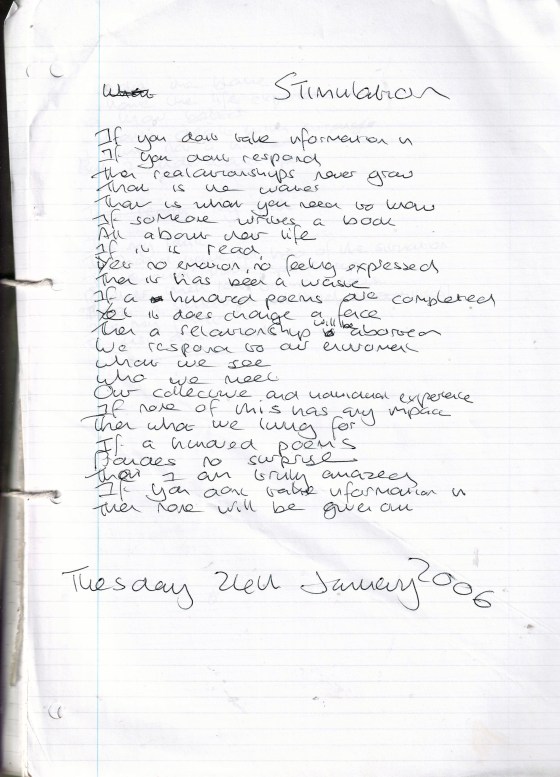 Stimulation
If you dont take information in
If you dont respond
then realationships never grow
That is the
That is what you need to know
If someone writes a book
All about their life
If it is read
Yet no emotion, no feeling expressed
Then it has been a waste
If a hundred poems are completed
Yet it does change a face
Then a relationship will be aborted
We respond to our enviroment
What we see
Who we meet
Our collective and individual experience
If none of this has any impact
Then what we living for
If a hundred poems
no surprise
Then I am truly amazed
If you dont take information in
then none will be given out
Tuesday 24th January 2006